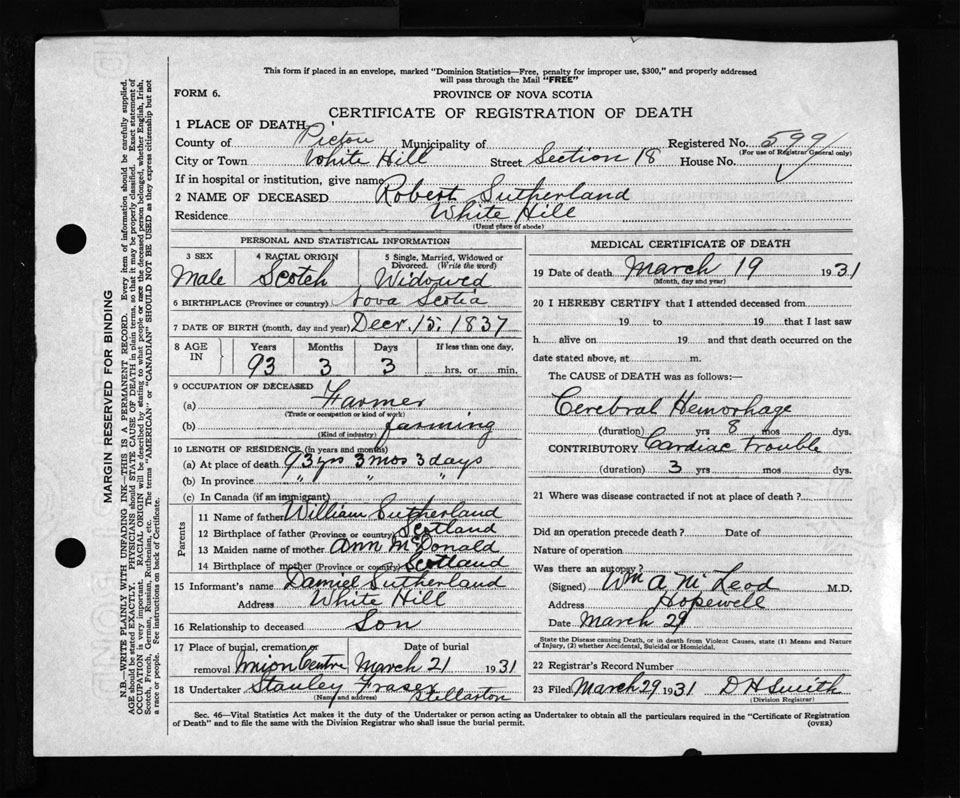 This form if placed in an envelope, marked "Dominion Statistics—Free, penalty for improper use, $300," and properly addressed
will pass through the Mail "FREE"
FORM 6.
PROVINCE OF NOVA SCOTIA
CERTIFICATE OF REGISTRATION OF DEATH
1 PLACE OF DEATH
County of Pictou Municipality of Registered No. 599
(For use of Registrar General only)
City or Town White Hill Street Section 18 House No.
If in hospital or institution, give name
2 NAME OF DECEASED Robert Sutherland
Residence White Hill
(Usual place of abode)
PERSONAL AND STATISTICAL INFORMATION
3 SEX 4 RACIAL ORIGIN 5 Single, Married, Widowed or Divorced. (Write the word)
Male Scotch Widowed
6 BIRTHPLACE (Province or country) Nova Scotia
7 DATE OF BIRTH (month, day and year) Decr. 15, 1837
8 AGE IN Years Months Days If less than one day,
93 3 3 hrs. or min.
9 OCCUPATION OF DECEASED
(a) Farmer
(Trade or occupation or kind of work)
(b) farming
(Kind of industry)
10 LENGTH OF RESIDENCE (in years and months)
(a) At place of death 93 yrs 3 mos 3 days
(b) In province " " "
(c) In Canada (if an immigrant)
Parents
11 Name of father William Sutherland
12 Birthplace of father (Province or country) Scotland
13 Maiden name of mother Ann McDonald
14 Birthplace of mother (Province or country) Scotland
15 Informant's name Daniel Sutherland
Address White Hill
16 Relationship to deceased Son
17 Place of burial, cremation or removal Date of burial
Union Centre March 21 1931
18 Undertaker Stanley Fraser Stellarton
(Name and address)
MEDICAL CERTIFICATE OF DEATH
19 Date of death March 19 1931
(Month, day and year)
20 I HEREBY CERTIFY that I attended deceased from
19 to 19 that I last saw
h alive on 19 and that death occurred on the
date stated above, at m.
The CAUSE of DEATH was as follows:—
Cerebral Hemorhage
(duration) yrs 8 mos dys.
CONTRIBUTORY Cardiac trouble
(duration) 3 yrs mos dys.
21 Where was disease contracted if not at place of death?
Did an operation precede death? Date of
Nature of operation
Was there an autopsy?
(Signed) Wm A McLeod M.D.
Address Hopewell
Date March 29
State the Disease causing Death, or in death from Violent Causes, state (1) Means and Nature
of Injury, (2) whether Accidental, Suicidal or Homicidal.
22 Registrar's Record Number
23 Filed March 29 1931 D H Smith
(Division Registrar)
Sec. 46—Vital Statistics Act makes it the duty of the Undertaker or person acting as Undertaker to obtain all the particulars required in the "Certificate of Registration
of Death" and to file the same with the Division Registrar who shall issue the burial permit.
(OVER)
MARGIN RESERVED FOR BINDING
N.B.—WRITE PLAINLY WITH UNFADING INK—THIS IS A PERMANENT RECORD. Every item of information should be carefully supplied.
AGE should be stated EXACTLY. PHYSICIANS should STATE CAUSE OF DEATH in plain terms, so that it may be properly classified. Exact statement of
OCCUPATION is very important. RACIAL ORIGIN will be described by stating to what people or race the deceased person belonged, whether English, Irish,
Scotch, French, German, Russian, Ruthenian, etc. The terms "AMERICAN" or "CANADIAN" SHOULD NOT BE USED as they express citizenship but not
a race or people. See instructions on back of Certificate.